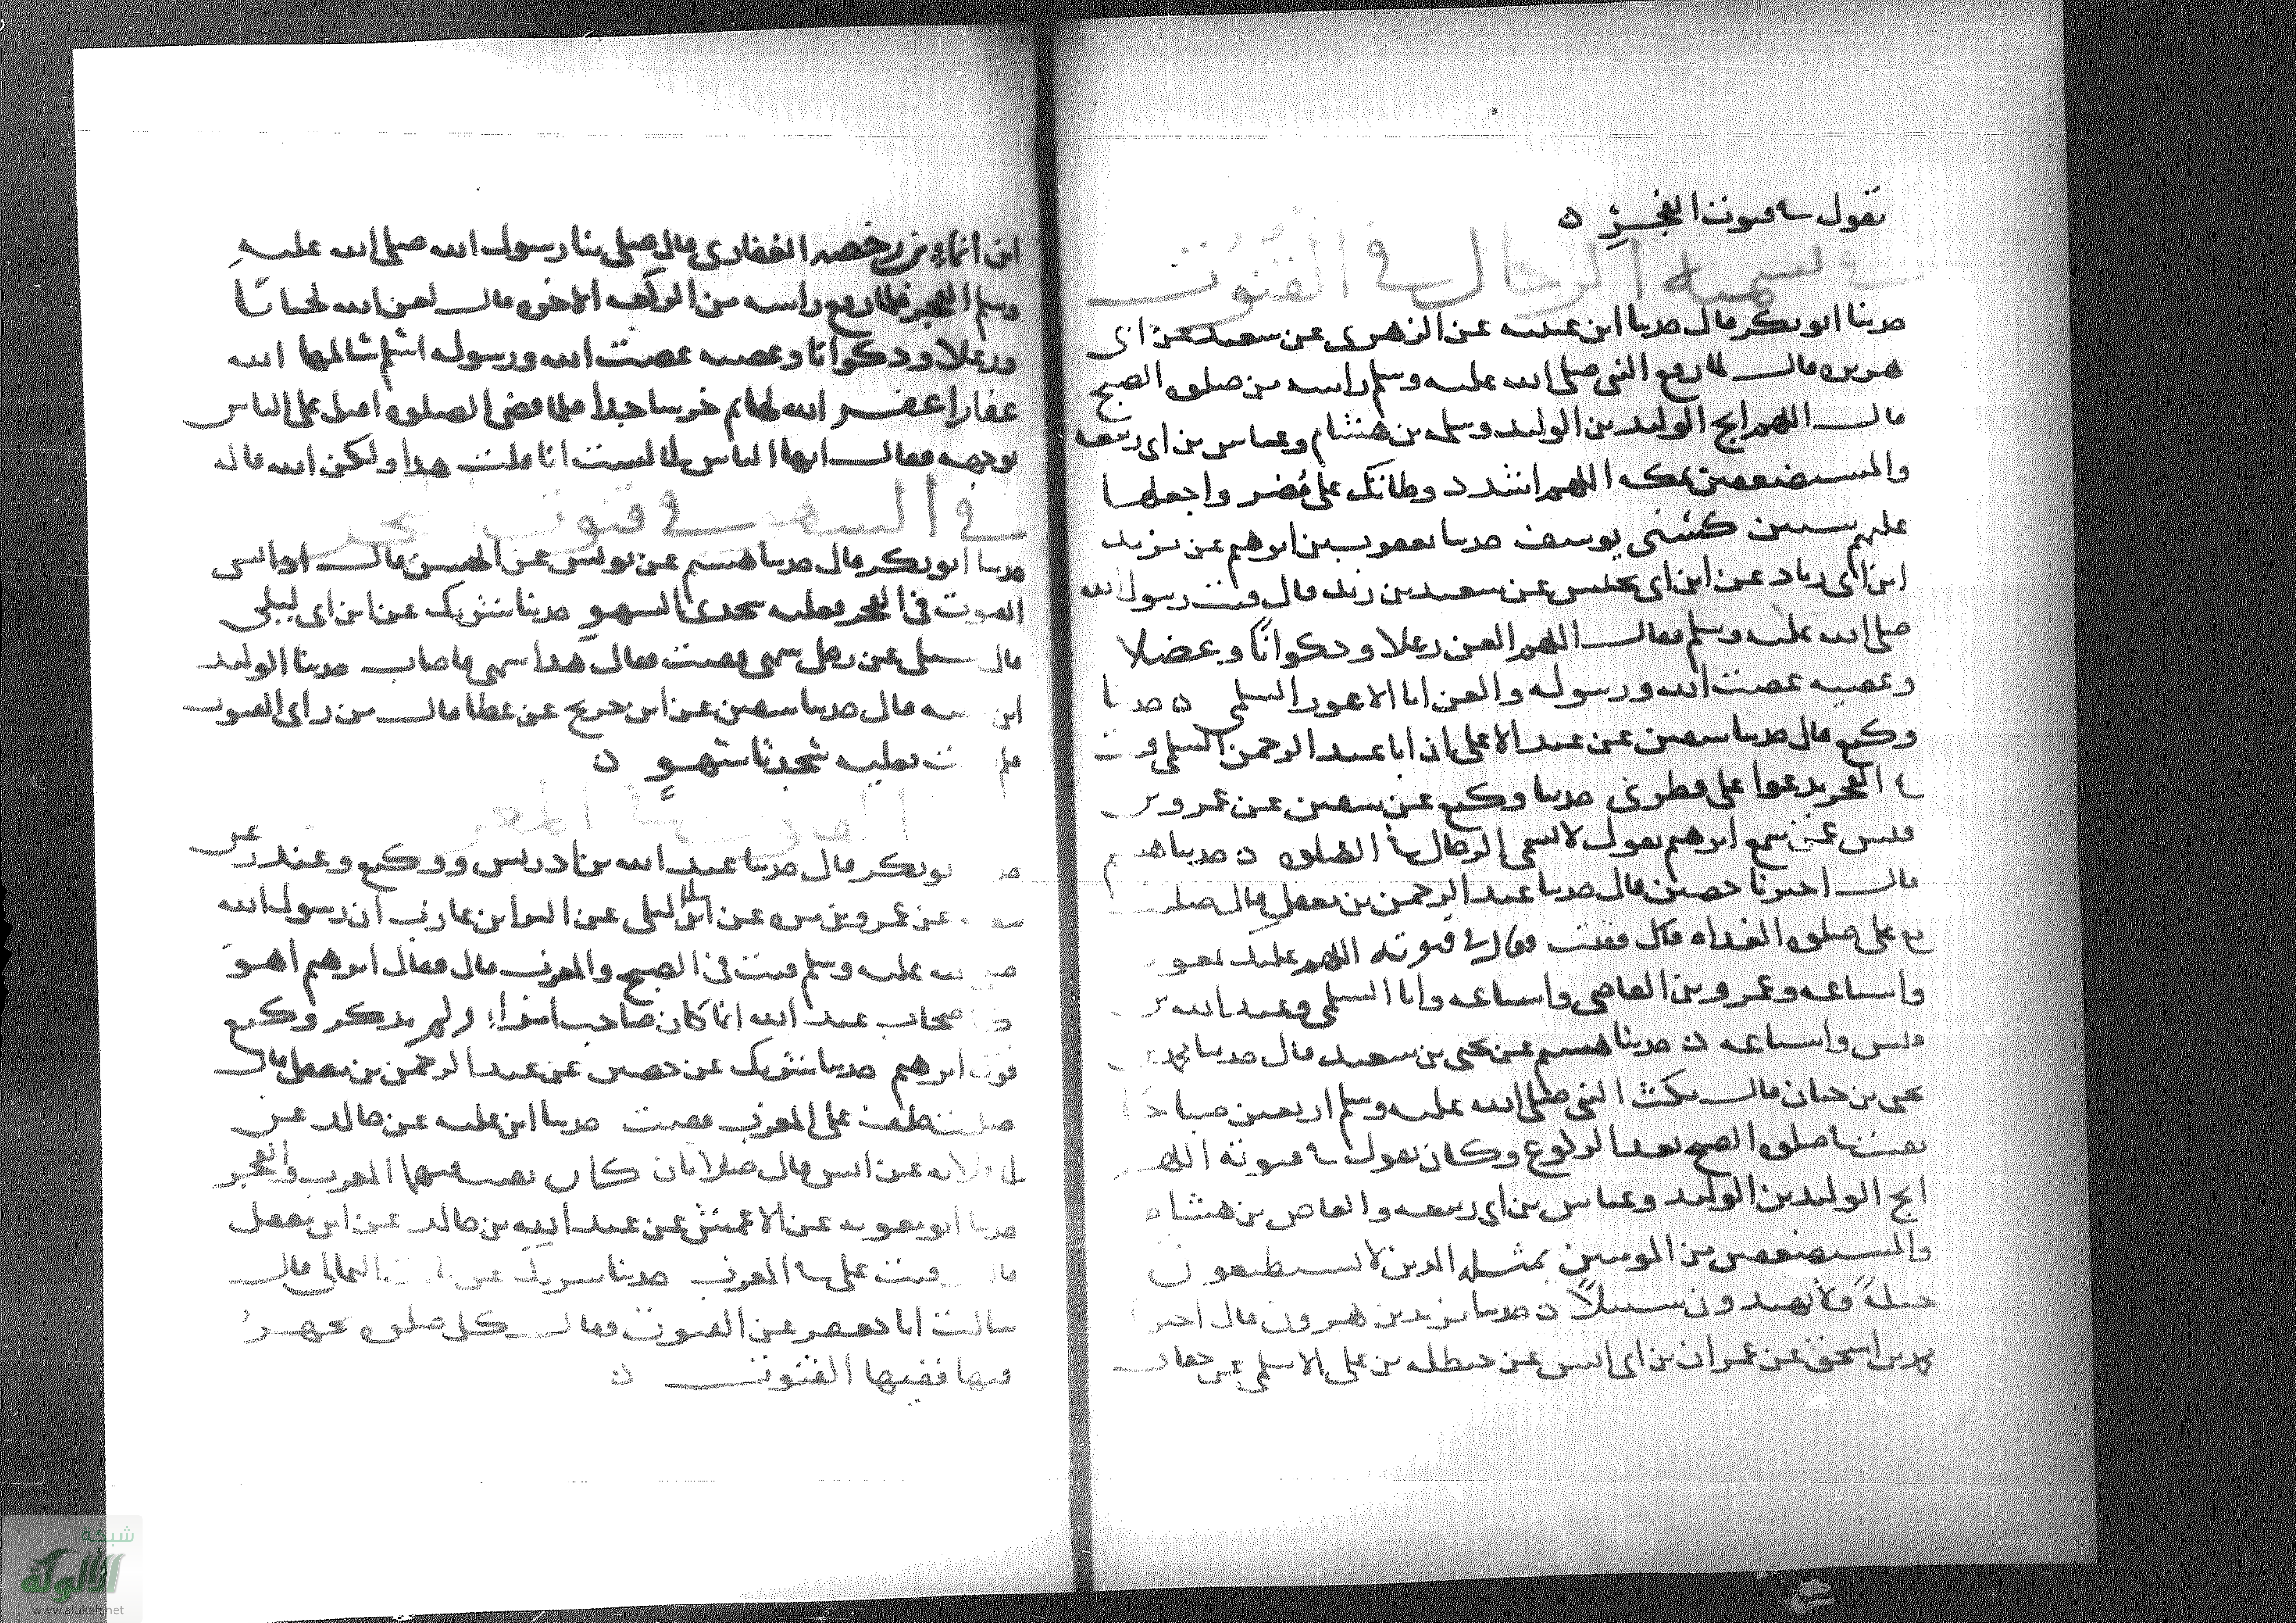 يقول في قنوت الفجر ه
في تسمية الرجال في القنوت
حدثنا ابو بكر قال حدثنا ابن عيينه عن الزهري عن سعيد عن ابي
هريره قال لما رفع النبي صلى الله عليه وسلم راسه من صلوه الصبح
قال اللهم انج الوليد بن الوليد وسلمه بن هشام وعياش بن ابي ربيعه
والمستضعفين بمكه اللهم اشدد وطاتك على مضر واجعلها
عليهم سنين كسني يوسف حدثنا يعقوب بن ابرهيم عن يزيد
ابن ابي زياد عن ابن ابي عن سعيد بن زيد قال قنت رسول الله
صلى الله عليه وسلم فقال اللهم العن رعلا وذكوانا وعضلا
وعصيه عصت الله ورسوله والعن ابا الاعور السلمي ه حدثنا
وكيع قال حدثنا سفين عن عبد الاعلى ان ابا عبد الرحمن السلمي قنت
في الفجر يدعوا على قطري حدثنا وكيع عن سفين عن عمرو بن
قيس عمن سمع ابرهيم يقول لا تسمى الرجال في الصلوه ه حدثنا هشيم
قال اخبرنا حصين قال حدثنا عبد الرحمن بن معقل قال صليت
مع علي صلوه الغداه قال فقنت فقال في قنوته اللهم عليك بمعويه
واشياعه وعمرو بن العاصي واشياعه وابا السلمي وعبد الله بن
قيس واشياعه ه حدثنا هشيم عن يحيى بن سعيد قال حدثنا محمد بن
يحيى بن حبان قال مكث النبي صلى الله عليه وسلم اربعين صباحا
يقنت في صلوه الصبح بعد الركوع وكان يقول في قنوته اللهم
انج الوليد بن الوليد وعياش بن ابي ربيعه والعاص بن هشام
والمستضعفين من المومنين بمكه الذين لا يستطيعون
حيلة ولا يهتدون سبيلا ه حدثنا يزيد بن هرون قال اخبرنا
محمد بن اسحق عن عمران بن ابي انس عن حنظله بن علي الاسلمي عن خفاف
ابن ايماء بن رحضه الغفاري قال صلى بنا رسول الله صلى الله عليه
وسلم الفجر فلما رفع راسه من الركعه الاخره قال لعن الله لحيانا
ورعلا وذكوانا وعصيه عصت الله ورسوله اسلم سالمها الله
غفارا غفر الله لها ثم خر ساجدا فلما قضى الصلوه اقبل على الناس
بوجهه فقال ايها الناس اني لست انا قلت هذا ولكن الله قاله
في السهو في قنوت الفجر
حدثنا ابو بكر قال حدثنا هشيم عن يونس عن الحسن قال اذا نسي
القنوت في الفجر فعليه سجدتا السهو حدثنا شريك عن ابن ابي ليلى
قال سئل عن رجل سهى فقنت فقال هذا سهى فاصاب حدثنا الوليد
ابن عقبه قال حدثنا سفين عن ابن جريج عن عطا قال من راى القنوت
فلم يقنت فعليه سجدتا سهو ه
حدثنا ابو بكر قال حدثنا عبد الله بن ادريس ووكيع وغندر عن
شعبه عن عمرو بن مره عن ابن ابي ليلى عن البرا بن عازب ان رسول الله
صلى الله عليه وسلم قنت في الصبح والمغرب قال فقال ابرهيم اهو
اصحاب عبد الله انما كان صاحب امرا ولم يذكر وكيع
قول ابرهيم حدثنا شريك عن حصين عن عبد الرحمن بن معقل قال
صليت خلف علي المغرب فقنت حدثنا ابن عليه عن خالد عن
ابي قلابه عن انس قال صلاتان كان يقنت فيهما المغرب والفجر
حدثنا ابو معويه عن الاعمش عن عبد الله بن خالد عن ابن معقل
قال قنت علي في المغرب حدثنا شريك عن ثابت الثمالي قال
سالت ابا جعفر عن القنوت فقال كل صلوه يجهر
فيها ففيها القنوت ه
شبكة
الألوكة
www.alukah.net